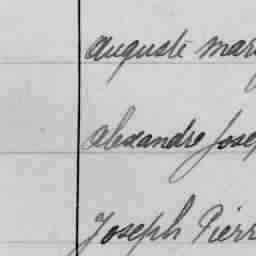 Auguste Mar
Alexandre Jose
Joseph Pierr